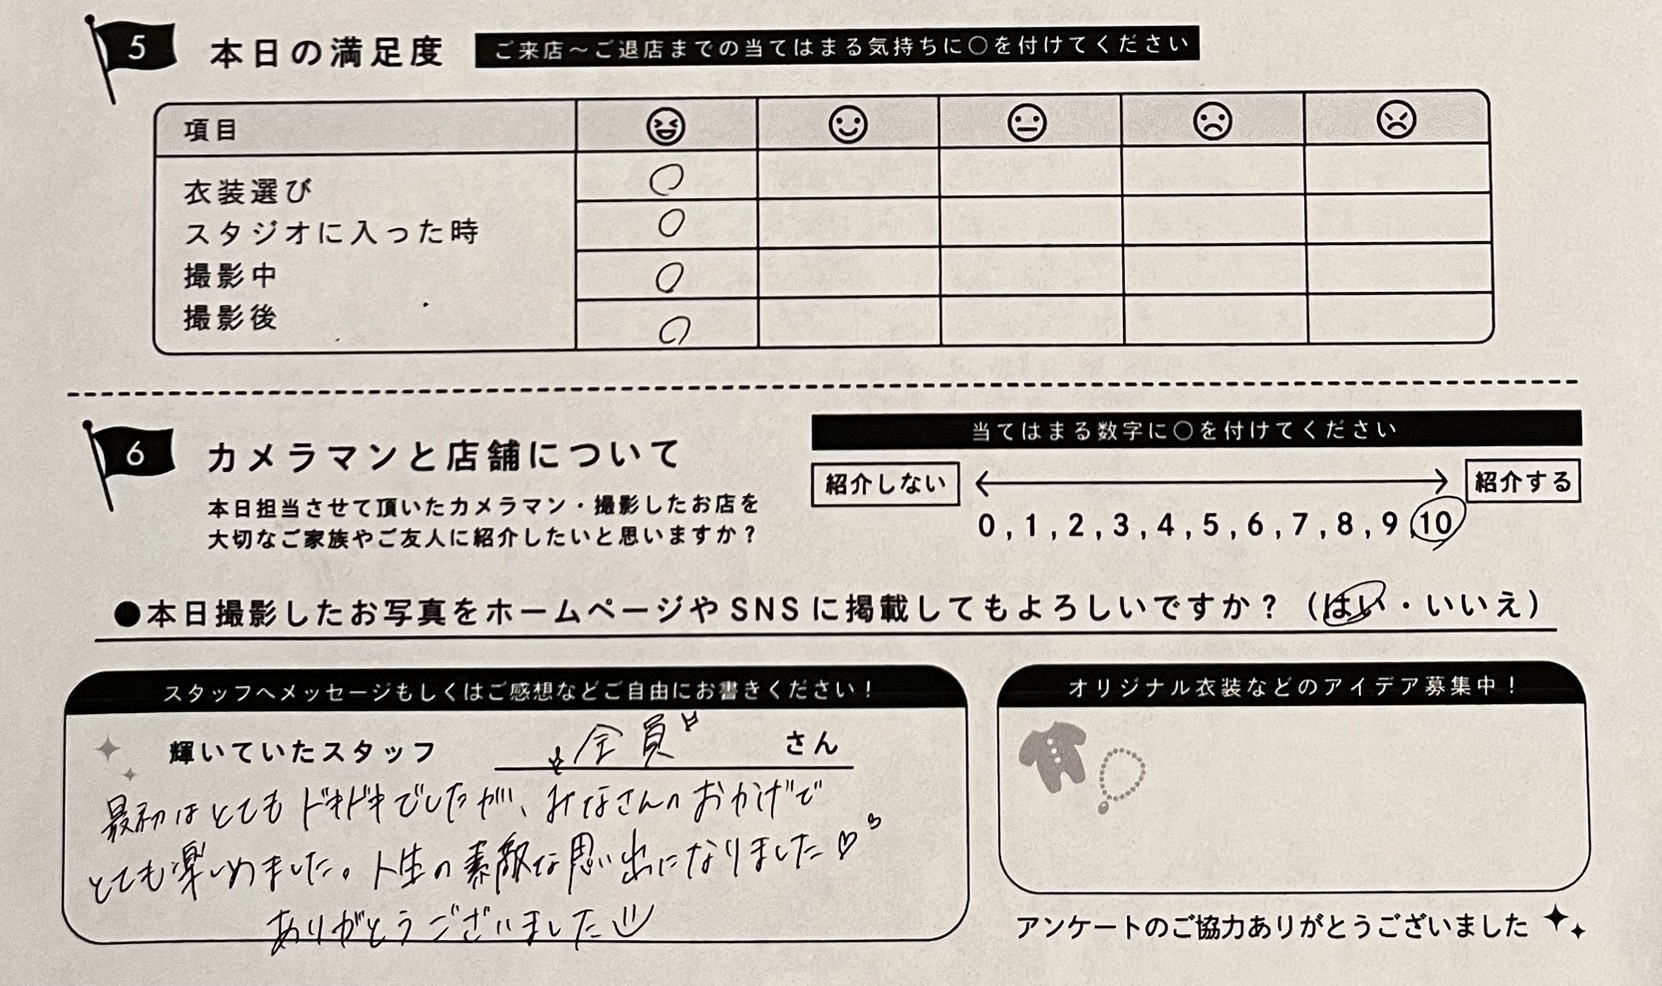 5 本日の満足度 ご来店～ご退店までの当てはまる気持ちに○を付けてください
項目
衣装選び ○
スタジオに入った時 ○
撮影中 ○
撮影後 ○
6 カメラマンと店舗について
本日担当させて頂いたカメラマン・撮影したお店を
大切なご家族やご友人に紹介したいと思いますか？
当てはまる数字に○を付けてください
紹介しない 紹介する
0,1,2,3,4,5,6,7,8,9,10
●本日撮影したお写真をホームページやSNSに掲載してもよろしいですか？（はい・いいえ）
スタッフへメッセージもしくはご感想などご自由にお書きください！
輝いていたスタッフ 全員 さん
最初はとてもドキドキでしたが、みなさんのおかげで
とても楽しめました。人生の素敵な思い出になりました♡
ありがとうございました
オリジナル衣装などのアイデア募集中！
アンケートのご協力ありがとうございました